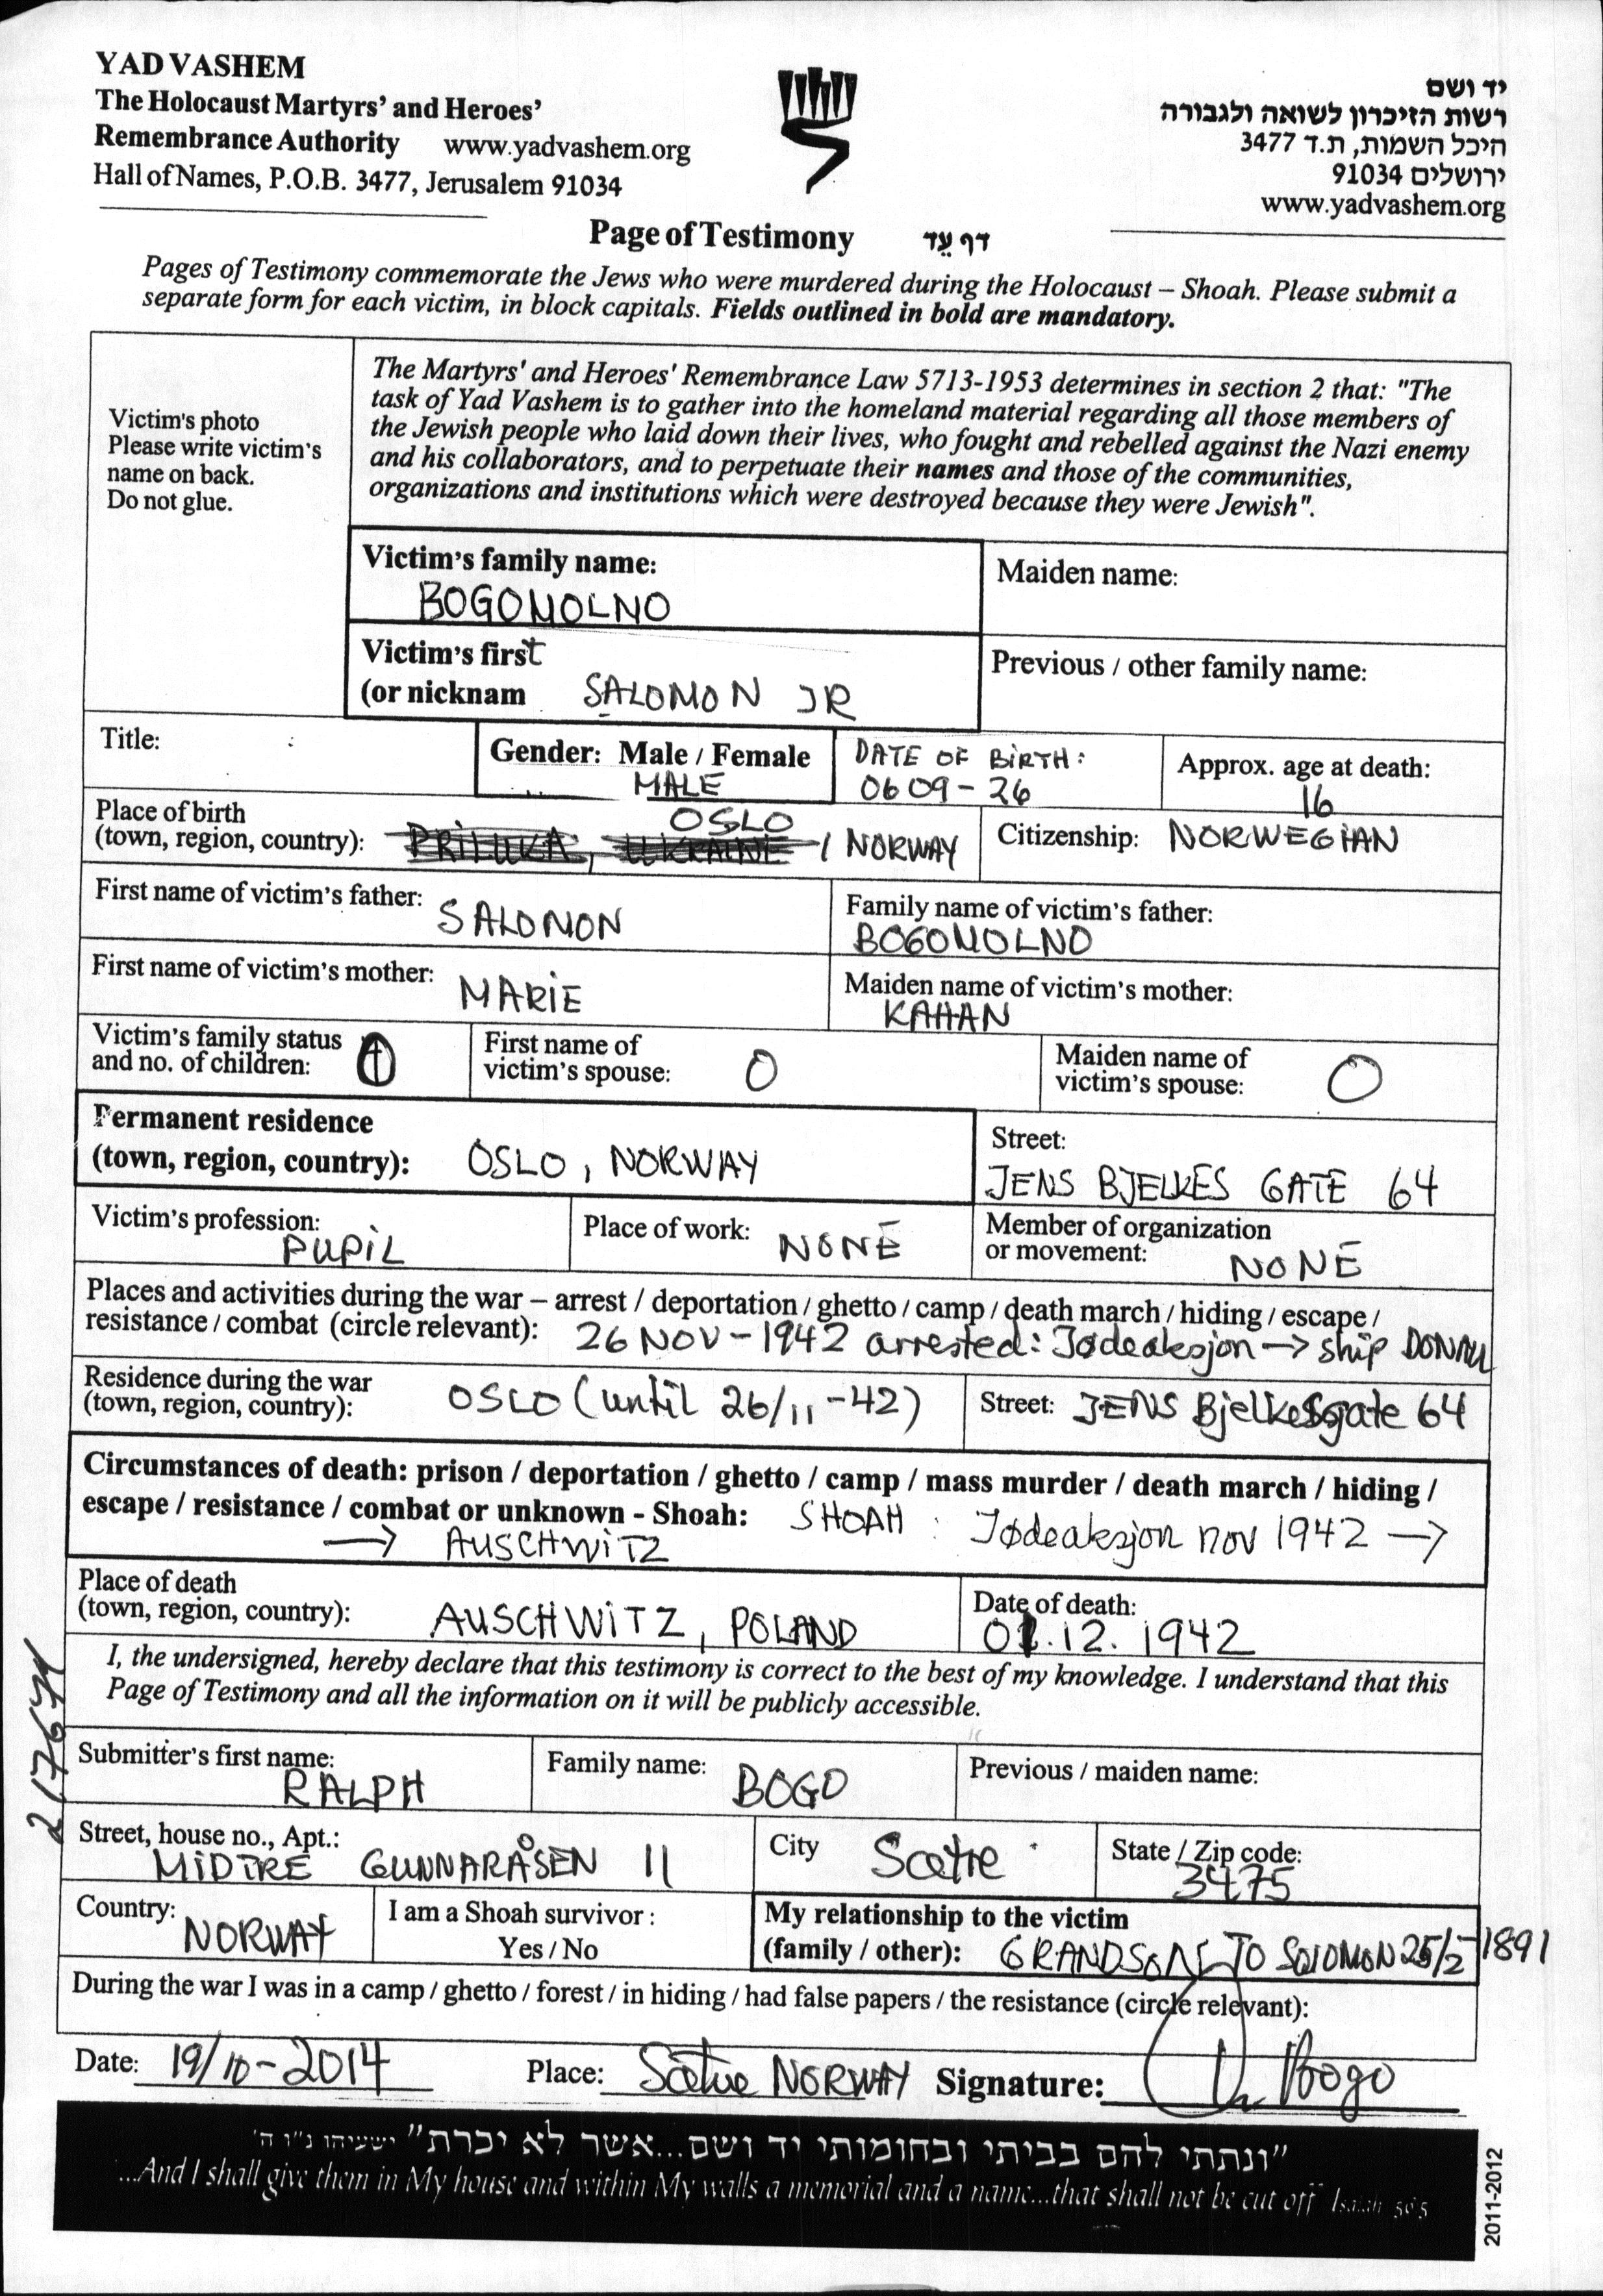 YAD VASHEM
The Holocaust Martyrs' and Heroes'
Remembrance Authority www.yadvashem.org
Hall of Names, P.O.B. 3477, Jerusalem 91034
יד ושם
רשות הזיכרון לשואה ולגבורה
היכל השמות, ת.ד 3477
ירושלים 91034
www.yadvashem.org
Page of Testimony דף עֵד
Pages of Testimony commemorate the Jews who were murdered during the Holocaust – Shoah. Please submit a
separate form for each victim, in block capitals. Fields outlined in bold are mandatory.
Victim's photo
Please write victim's
name on back.
Do not glue.
The Martyrs' and Heroes' Remembrance Law 5713-1953 determines in section 2 that: "The
task of Yad Vashem is to gather into the homeland material regarding all those members of
the Jewish people who laid down their lives, who fought and rebelled against the Nazi enemy
and his collaborators, and to perpetuate their names and those of the communities,
organizations and institutions which were destroyed because they were Jewish".
Victim's family name:
BOGOMOLNO
Maiden name:
Victim's first
(or nicknam SALOMON JR
Previous / other family name:
Title:
Gender: Male / Female
MALE
DATE OF BIRTH:
0609-26
Approx. age at death:
16
Place of birth
(town, region, country): PRILUKA, UKRAINE OSLO / NORWAY
Citizenship: NORWEGIAN
First name of victim's father: SALOMON
Family name of victim's father:
BOGOMOLNO
First name of victim's mother: MARIE
Maiden name of victim's mother:
KAHAN
Victim's family status
and no. of children: 0
First name of
victim's spouse: 0
Maiden name of
victim's spouse: 0
Permanent residence
(town, region, country): OSLO, NORWAY
Street:
JENS BJELKES GATE 64
Victim's profession:
PUPIL
Place of work: NONE
Member of organization
or movement: NONE
Places and activities during the war – arrest / deportation / ghetto / camp / death march / hiding / escape /
resistance / combat (circle relevant): 26 NOV-1942 arrested: Jødeaksjon → ship
Residence during the war
(town, region, country): OSLO (until 26/11-42)
Street: JENS Bjelkesgate 64
Circumstances of death: prison / deportation / ghetto / camp / mass murder / death march / hiding /
escape / resistance / combat or unknown - Shoah: SHOAH: Jødeaksjon nov 1942 →
→ AUSCHWITZ
Place of death
(town, region, country): AUSCHWITZ, POLAND
Date of death:
01.12.1942
I, the undersigned, hereby declare that this testimony is correct to the best of my knowledge. I understand that this
Page of Testimony and all the information on it will be publicly accessible.
Submitter's first name:
RALPH
Family name: BOGO
Previous / maiden name:
Street, house no., Apt.:
MIDTRE GUNNARÅSEN 11
City Sætre
State / Zip code:
3475
Country: NORWAY
I am a Shoah survivor :
Yes / No
My relationship to the victim
(family / other): GRANDSON TO SOLOMON 25/2-1891
During the war I was in a camp / ghetto / forest / in hiding / had false papers / the resistance (circle relevant):
Date: 19/10-2014 Place: Sætre NORWAY Signature: Bogo
"ונתתי להם בביתי ובחומותי יד ושם...אשר לא יכרת" ישעיהו נ"ו ה'
...And I shall give them in My house and within My walls a memorial and a name...that shall not be cut off Isaiah 56:5
2011-2012